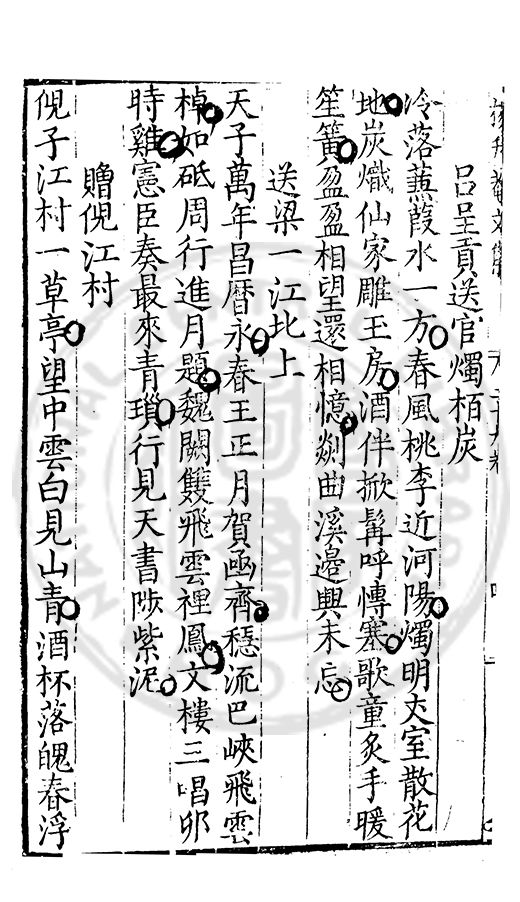 呂呈貢送官燭栢炭
冷落蒹葭水一方春風桃李近河陽燭明夾室散花
地炭熾仙家雕玉房酒伴掀髯呼慱塞歌童炙手暖
笙簧盈盈相望還相憶剡曲溪邉興未忘
送梁一江北上
天子萬年昌曆永春王正月賀亟齊穏流巴峽飛雲
棹如砥周行進月題魏闕雙飛雲裡鳳文樓三唱卯
時雞憲臣奏最來青瑣行見天書陟紫泥
贈倪江村
倪子江村一草亭望中雲白見山青酒杯落魄春浮